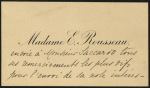 Madame E. Rousseau
envoie à Monsieur Saccardo tous
ses remerciements les plus vifs
pour l'envoi de sa note intéres-